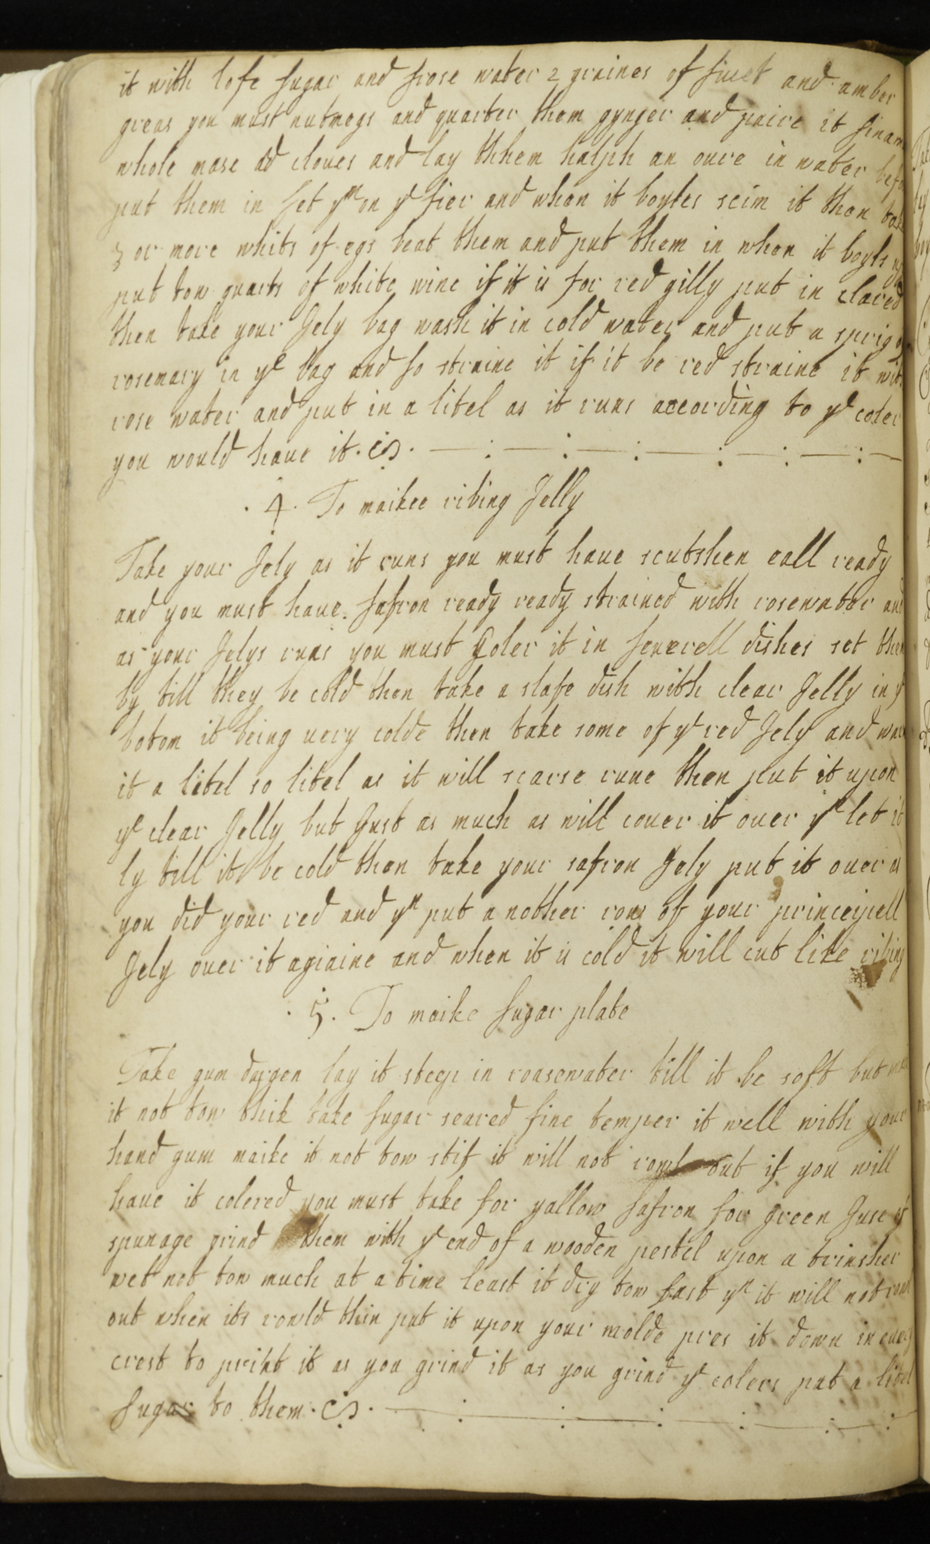 it with lofe sugar and rose water 2 graines of and amber
greas you must nutmegs and quarter them gynger and paire it sinam
whole mase ad cloues and lay thhem halph an oure in water befo
put them in set yᵐ on yᵉ fier and when it boyles scim it then tak
3 or more whits of egs beat them and put them in when it boyls
put tow quarts of white wine if it is for red gilly put in clared
then take your Jely bag wash it in cold water and put a sprig
rosemary in yᵉ bag and so straine it if it be red straine it with
rose water and put in a litel as it runs according to yᵉ coler
you would haue it.
.4. To maikee ribing Jelly
Take your Jely as it runs you must haue scutshen eall ready
and you must haue safron ready ready strained with rosewater and
as your Jelys runs you must Coler it in seuerell dishes set them
by till they be cold then take a slafe dish with clear Jelly in y
botom it being uery colde then take some of yᵉ red Jely and warm
it a litel so litel as it will scarse rune then put it upon
yᵉ clear Jelly but Just as much as will couer it ouer yⁿ let it
ly till it be cold then take your safron Jely put it ouer as
you did your red and yⁿ put a nother row of your princeipell
Jely ouer it agiaine and when it is cold it will cut like ribing
.5. To maike sugar plate
Take gum dragen lay it steep in roasewater till it be soft but
it not tow thik take sugar seared fine temper it well with your
hand gum maike it not tow stif it will not rowl out if you will
haue it colered you must take for yallow safron for green Juse of
spunage grind them with yᵉ end of a wooden pestel upon a trinsher
wet not tow much at a time least it dry tow fast yⁿ it will not rowl
out when its rowld thin put it upon your molde pres it down in euery
crest to print it as you grind it as you grind yᵉ colers put a litel
sugar to them.